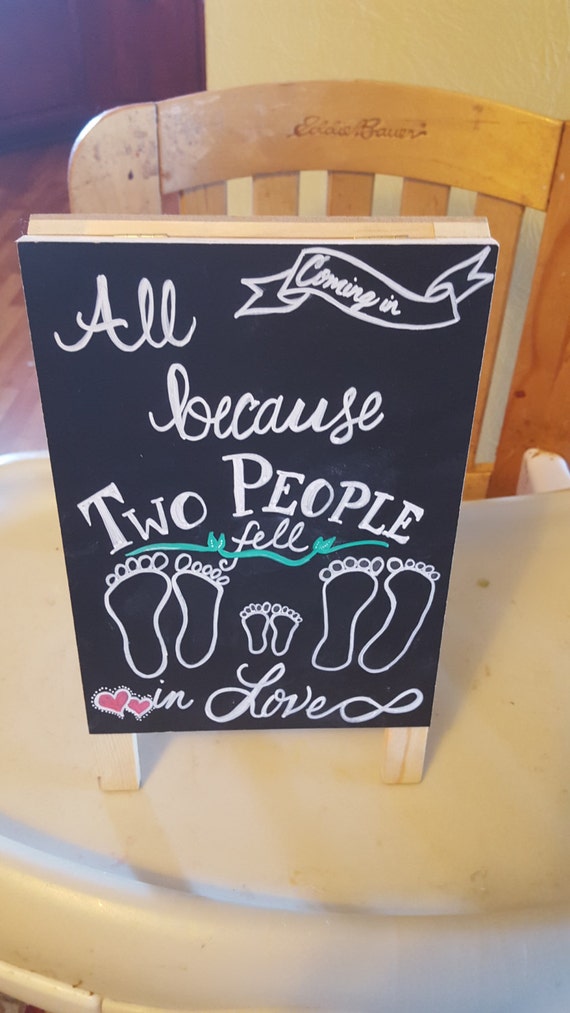 Eddie Bauer
Coming in
All
because
Two People
fell
in Love